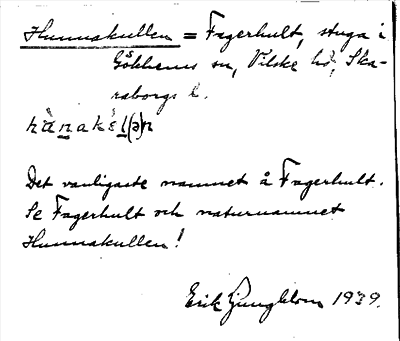 Hunnakullen = Fagerhult, stuga i
Gökhems sn, Vilske hd, Ska-
raborgs l.
hànakèl(ə)n
Det vanligaste namnet å Fagerhult.
Se Fagerhult och naturnamnet
Hunnakullen!
Erik Ljungblom 1939.